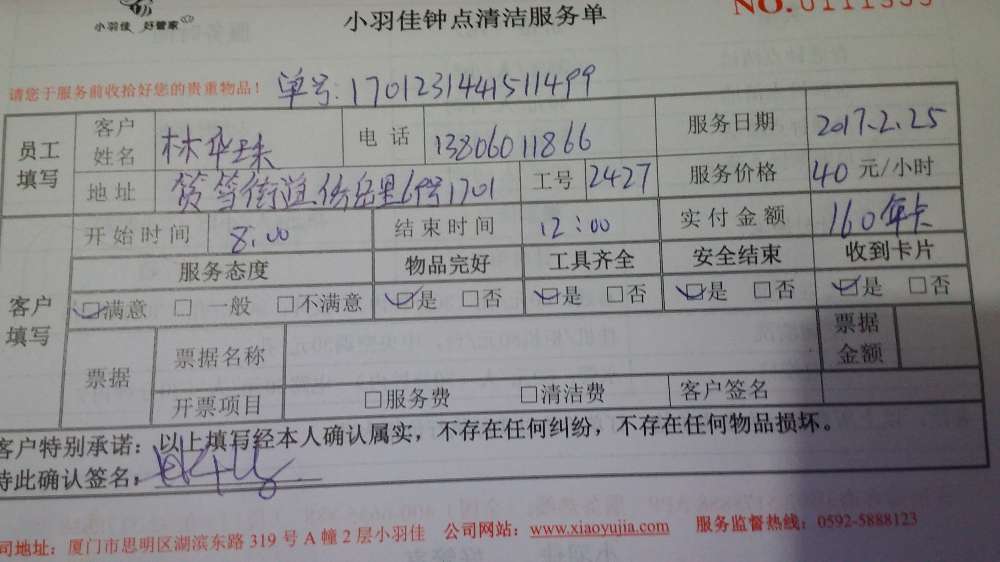 小羽佳 好管家
小羽佳钟点清洁服务单
NO.0111333
请您于服务前收拾好您的贵重物品! 单号:1701231441511499
员工填写 客户姓名 林华珠 电话 13806011866 服务日期 2017.2.25
地址 街道 6号1701 工号 2427 服务价格 40 元/小时
开始时间 8:00 结束时间 12:00 实付金额 160年卡
客户填写 服务态度 物品完好 工具齐全 安全结束 收到卡片
满意 一般 不满意 是 否 是 否 是 否 是 否
票据 票据名称 票据金额
开票项目 服务费 清洁费 客户签名
客户特别承诺:以上填写经本人确认属实,不存在任何纠纷,不存在任何物品损坏。
特此确认签名:
司地址:厦门市思明区湖滨东路 319 号 A 幢 2 层小羽佳 公司网站:www.xiaoyujia.com 服务监督热线:0592-5888123